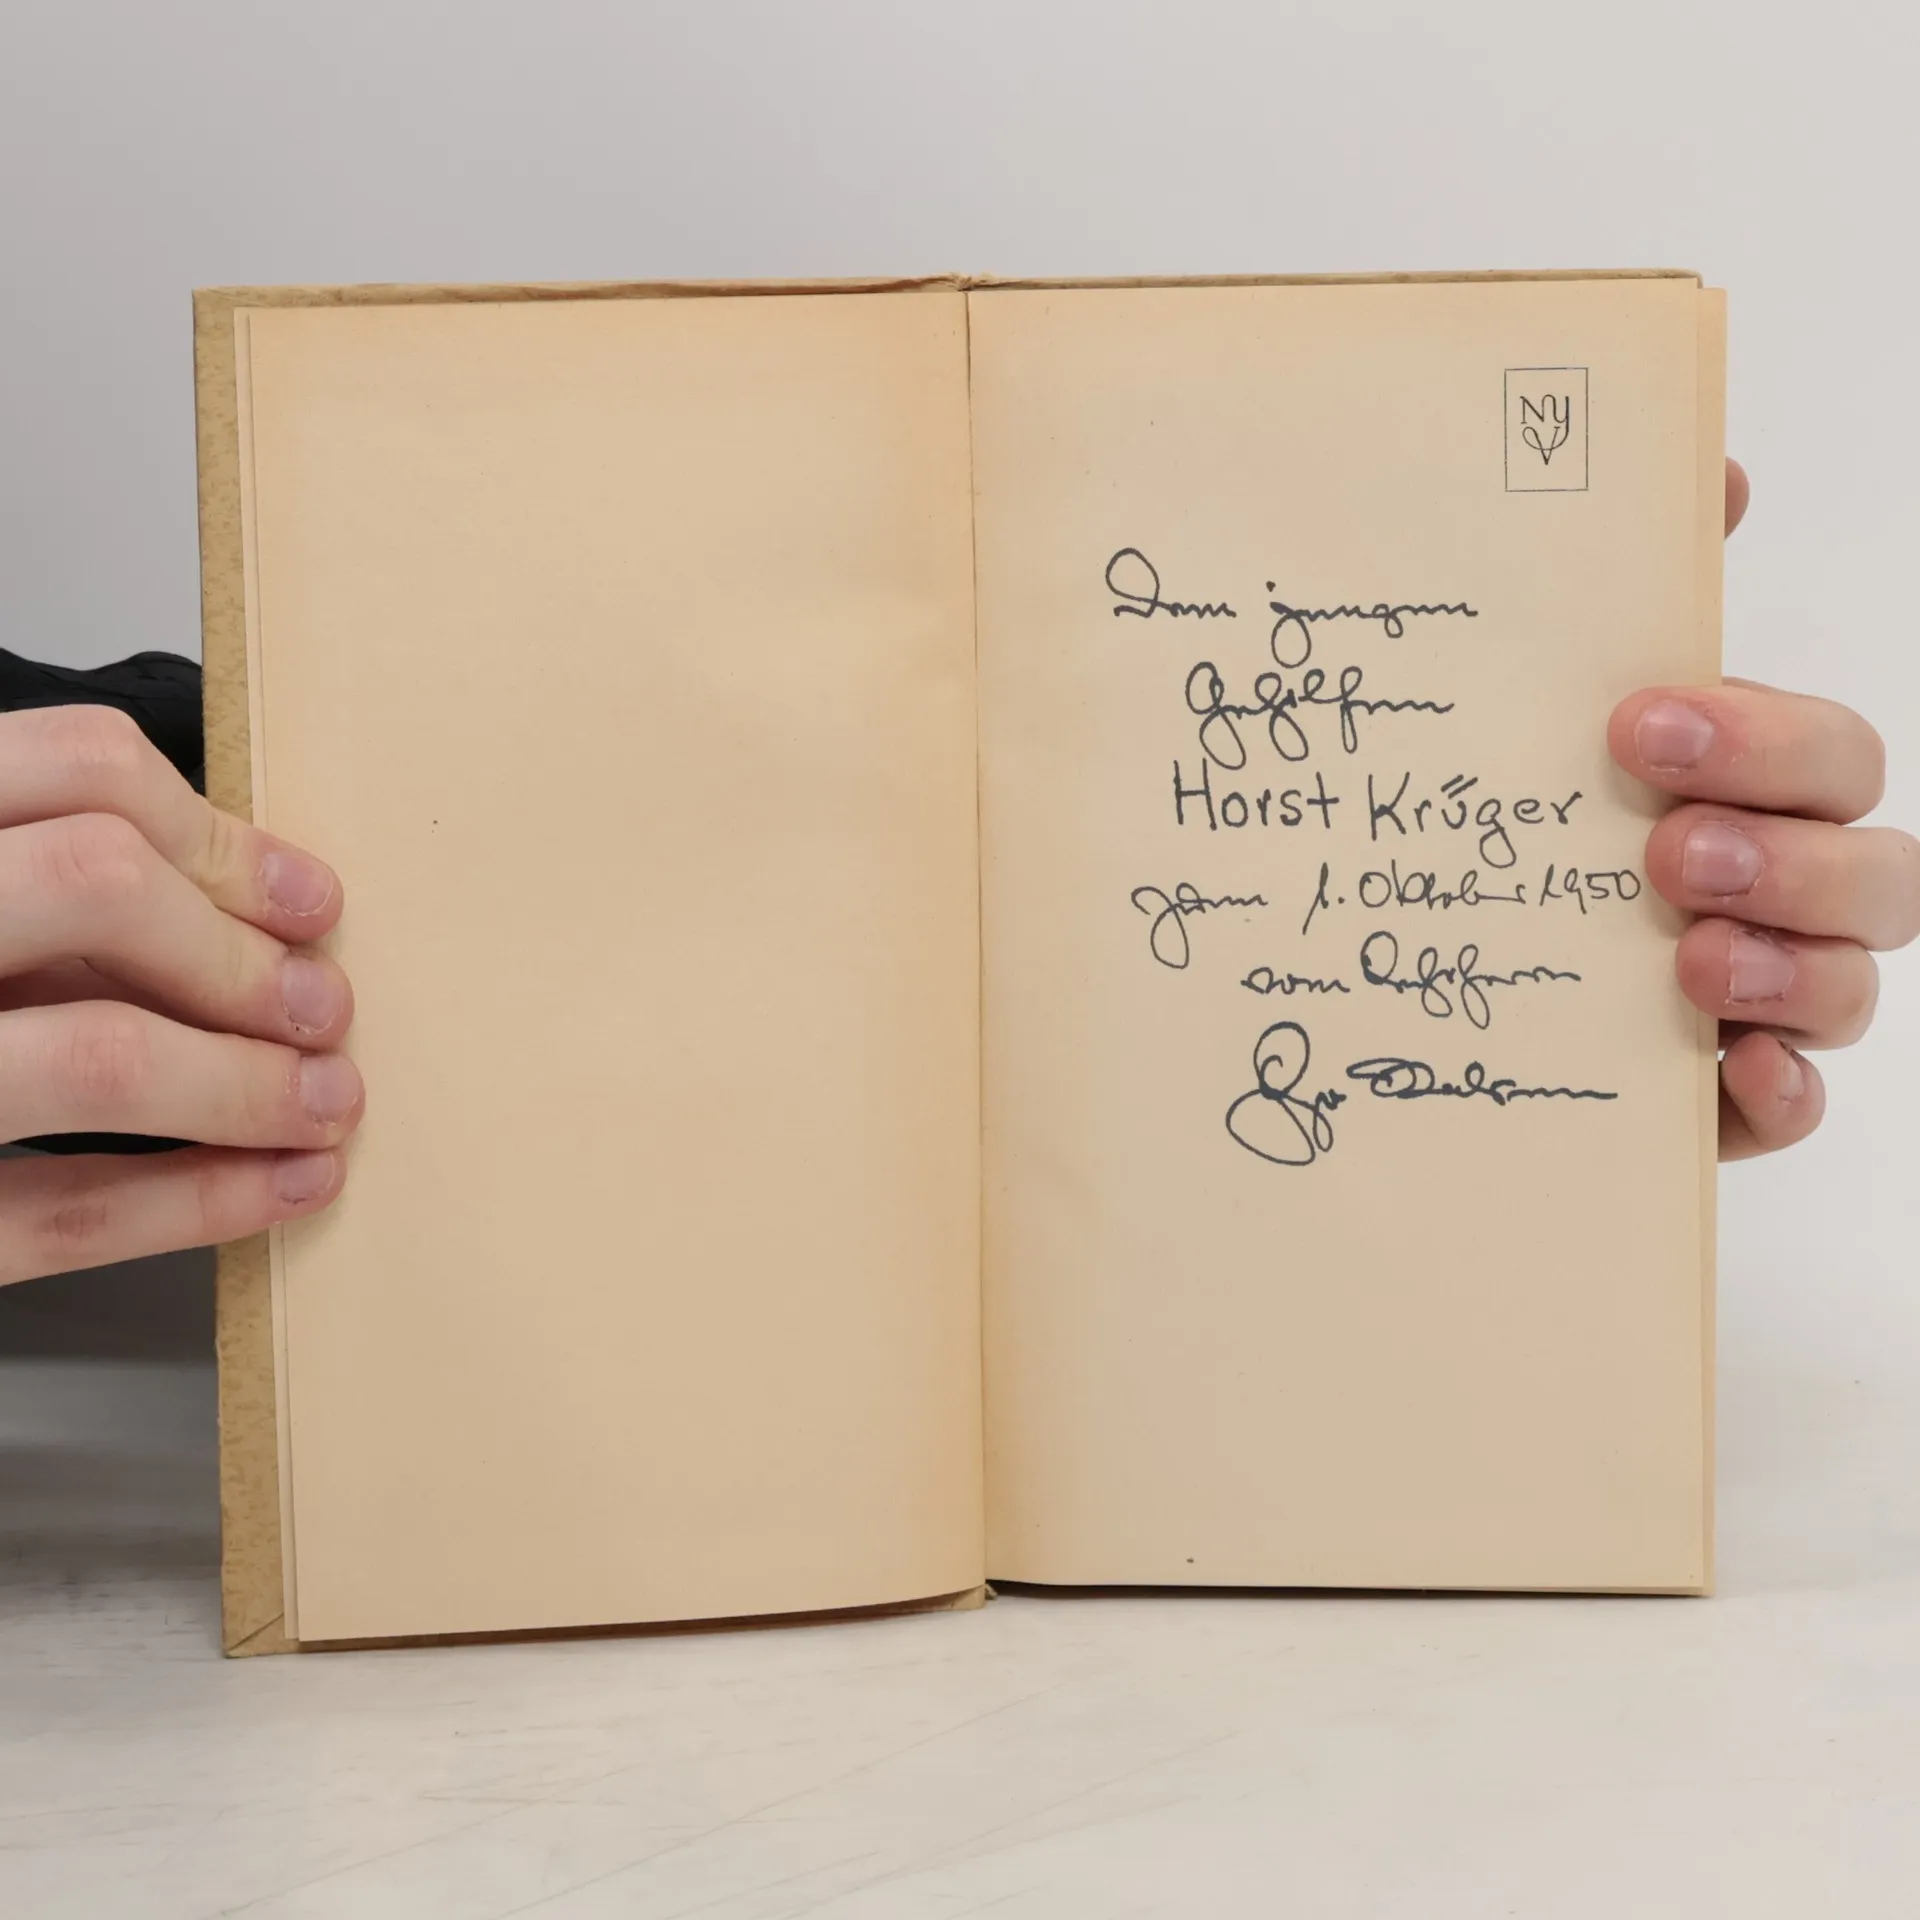 NYV
Dem jungen
Gehilfen
Horst Krüger
zum 1. Oktober 1950
vom Lehrherrn